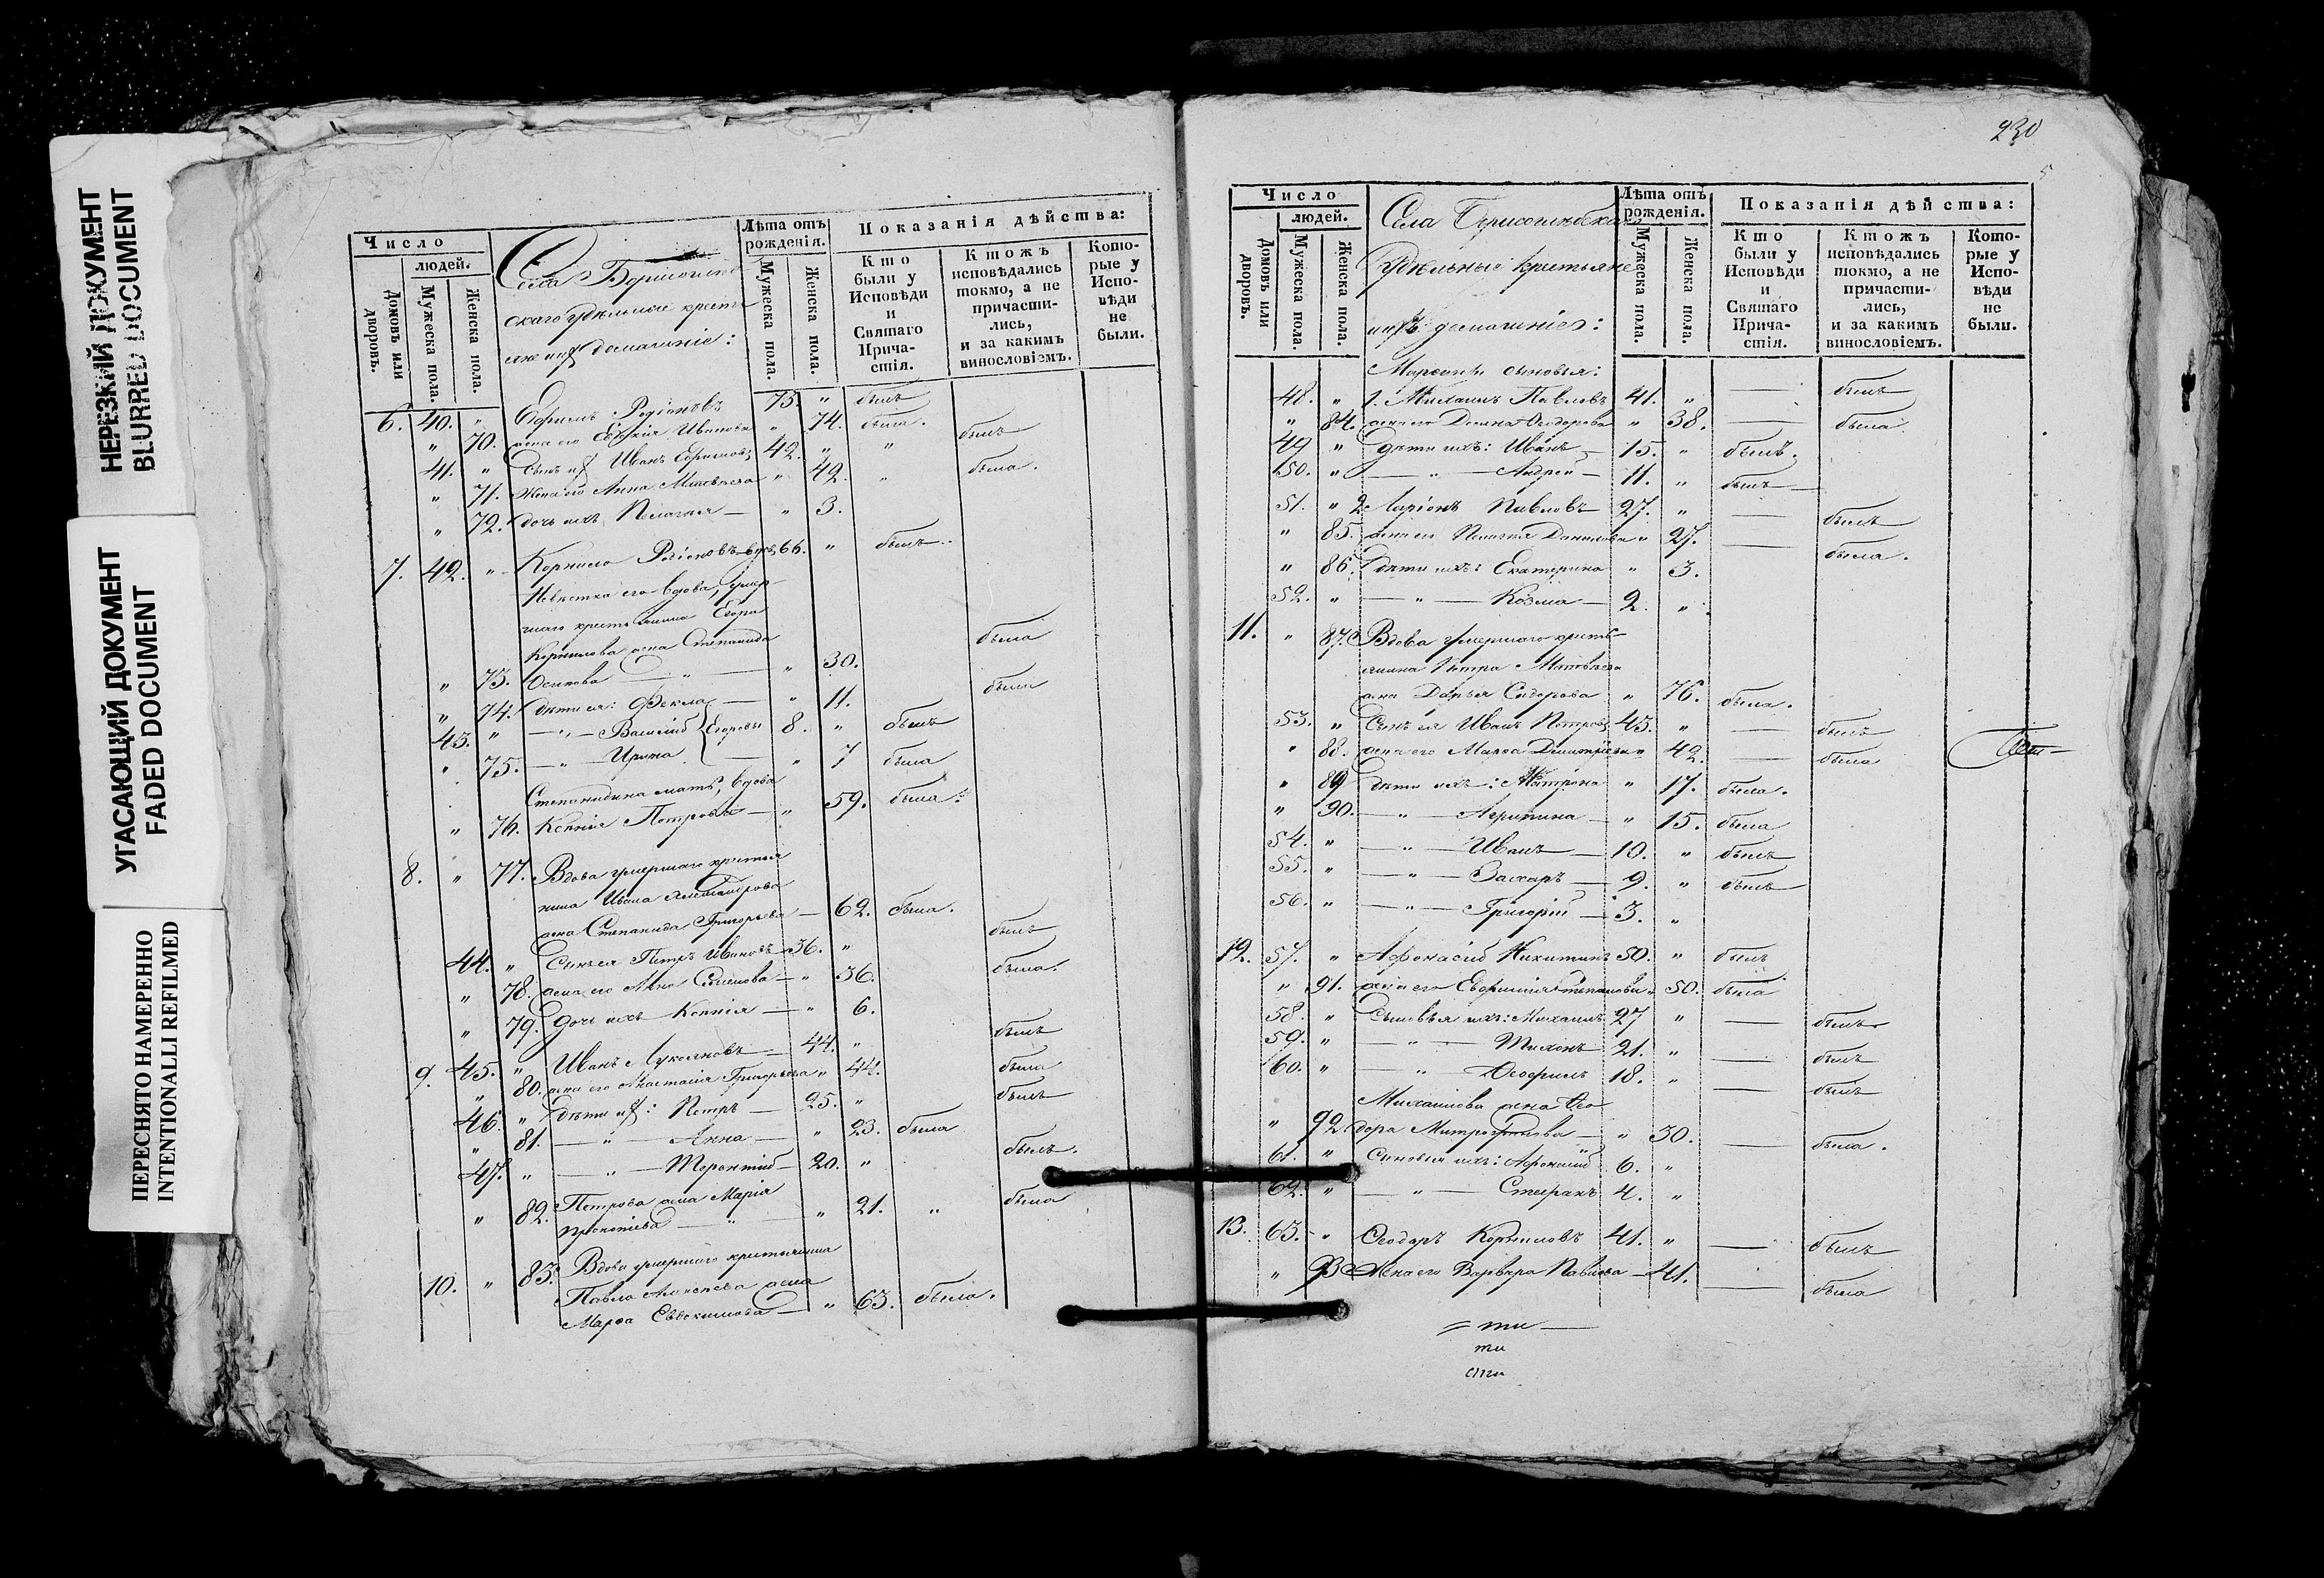 НЕРЕЗКИЙ ДОКУМЕНТ
BLURRED DOCUMENT
УГАСАЮЩИЙ ДОКУМЕНТ
FADED DOCUMENT
ПЕРЕСНЯТО НАМЕРЕННО
INTENTIONALLI REFILMED
Число
людей.
Домовъ или дворовъ.
Мужеска пола.
Женска пола.
Села
скаго удѣльные кресть
яне ихъ домашніе:
Лѣта отъ рожденія.
Мужеска пола.
Женска пола.
Показанія дѣйства:
Кто были у Исповѣди и Святаго Прича- стія.
Ктожъ исповѣдались токмо, а не причасти- лись, и за какимъ винословіемъ.
Кото- рые у Испо- вѣди не были.
6. 40. " Ефимъ Родіоновъ 75. " былъ
" 70. жена его Иванова " 74. была.
41. " Сынъ их Иванъ Ефимовъ 42. " " былъ
" 71. Жена его Анна Матвѣева " 42. " была.
" 72. дочь ихъ Пелагея — " 3.
7. 42. " Корнило Родіоновъ вдов 66. " былъ
Невѣстка его вдова, умер-
шаго крестьянина Егора
Корнилова жена Степанида
" 73. Осипова — " — " 30. была
" 74. дѣти ея: Фекла — " 11. была
43. " — " — Василій Егоровы 8. " былъ
" 75. — " — Ирина — " 7 была
Степанидина мать, вдова
" 76. Ксенія Петрова — " 59. была.
8. " 77. Вдова умершаго крестья
нина Ивана
жена Степанида Григорьева — 62. была.
44. " Сынъ ея Петръ Ивановъ 36. " былъ
" 78. жена его Анна — " 36. была.
" 79. дочь ихъ Ксенія — " 6.
9. 45. " Иванъ Лукояновъ — 44. " былъ
" 80. жена его Анастасія Григорьева " 44. была
46. " дѣти их: Петръ — 25. " былъ
" 81. — " — Анна — " 23. была
47. " — " — Терентій — 20. " былъ.
" 82. Петрова жена Марія
Прокопіева — " — " 21. " была
10. " 83. Вдова умершаго крестьянина
Павла Алексѣева жена
Марѳа Евдокимова — " 63. была.
230
5
Число
людей.
Домовъ или дворовъ.
Мужеска пола.
Женска пола.
Села Борисоглѣбскаго
Удѣльные крестьяне
ихъ домашніе:
Лѣта отъ рожденія.
Мужеска пола.
Женска пола.
Показанія дѣйства:
Кто были у Исповѣди и Святаго Прича- стія.
Ктожъ исповѣдались токмо, а не причасти- лись, и за какимъ винословіемъ.
Кото- рые у Испо- вѣди не были.
Марѳины сыновья:
48. " 1. Михаилъ Павловъ 41. " — былъ
" 84. жена его Ѳеодорова " 38. — была
49 " Дѣти ихъ: Иванъ — 15. " былъ.
50. " — " — Андрей — 11. " былъ —
51. " 2 Ларіонъ Павловъ 27. " — былъ
" 85. жена его Пелагея Данилова " 27. — была.
" 86. дѣти ихъ: Екатерина " 3.
52. " — " — Козма — 2. "
11. " 87. Вдова умершаго кресть-
янина Петра Матвѣева
жена Дарья Сидорова " 76. была.
53. " Сынъ ея Иванъ Петровъ 45. " — былъ
" 88. жена его Марѳа Дмитріева " 42. — была
" 89 дѣти ихъ: Матрона " 17. была.
" 90. — " — Агрипина — " 15. была
54. " — " — Иванъ — 10. " былъ
55. " — " — Захаръ — 9. " былъ
56. " — " — Григорій — 3. "
12. 57. " Афонасій Никитинъ 50. " былъ
" 91. жена его Евфимія Степанова " 50. была
58. " Сыновья ихъ: Михаилъ 27 " — былъ
59. " — " — Тихонъ 21. " — былъ
60. " — " — Ѳеофилъ 18. " — былъ
Михаилова жена Ѳео
" 92 дора Митрофанова — " 30. — была.
61. " Сыновья ихъ: Афонасій 6. "
62. " — " — Стефанъ 4. "
13. 63. " Ѳеодоръ Корниловъ 41. " — былъ
" 93 Жена его Варвара Павлова — 41. — была
= ти —
ти
сти